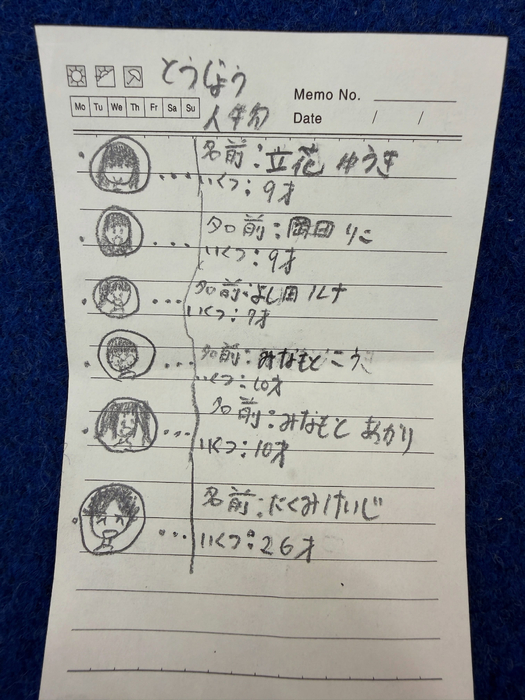 とうじょう
人物
Mo Tu We Th Fr Sa Su
Memo No.
Date / /
名前:立花 ゆうき
いくつ:9才
名前:岡田 りこ
いくつ:9才
名前:よし田 ルナ
いくつ:7才
名前:みなもと こう
いくつ:10才
名前:みなもと あかり
いくつ:10才
名前:たくみけいじ
いくつ:26才